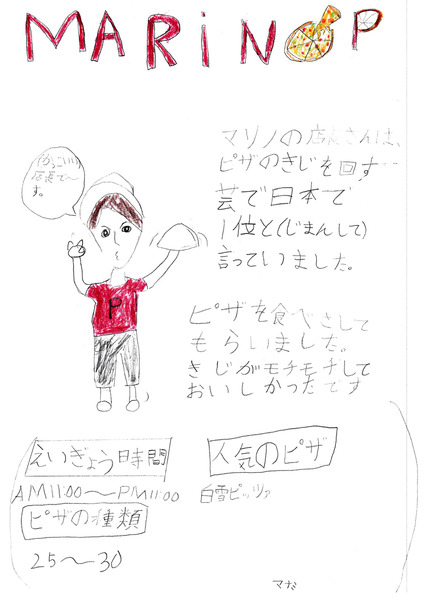 MARiNO P
(かっこいい)
店長で〜
す。
P
マリノの店長さんは、
ピザのきじを回す
芸で日本で
1位と(じまんして)
言っていました。
ピザを食べさして
もらいました。
きじがモチモチして
おいしかったです
えいぎょう時間
AM11:00〜PM11:00
ピザの種類
25〜30
人気のピザ
白雪ピッツァ
マナミ